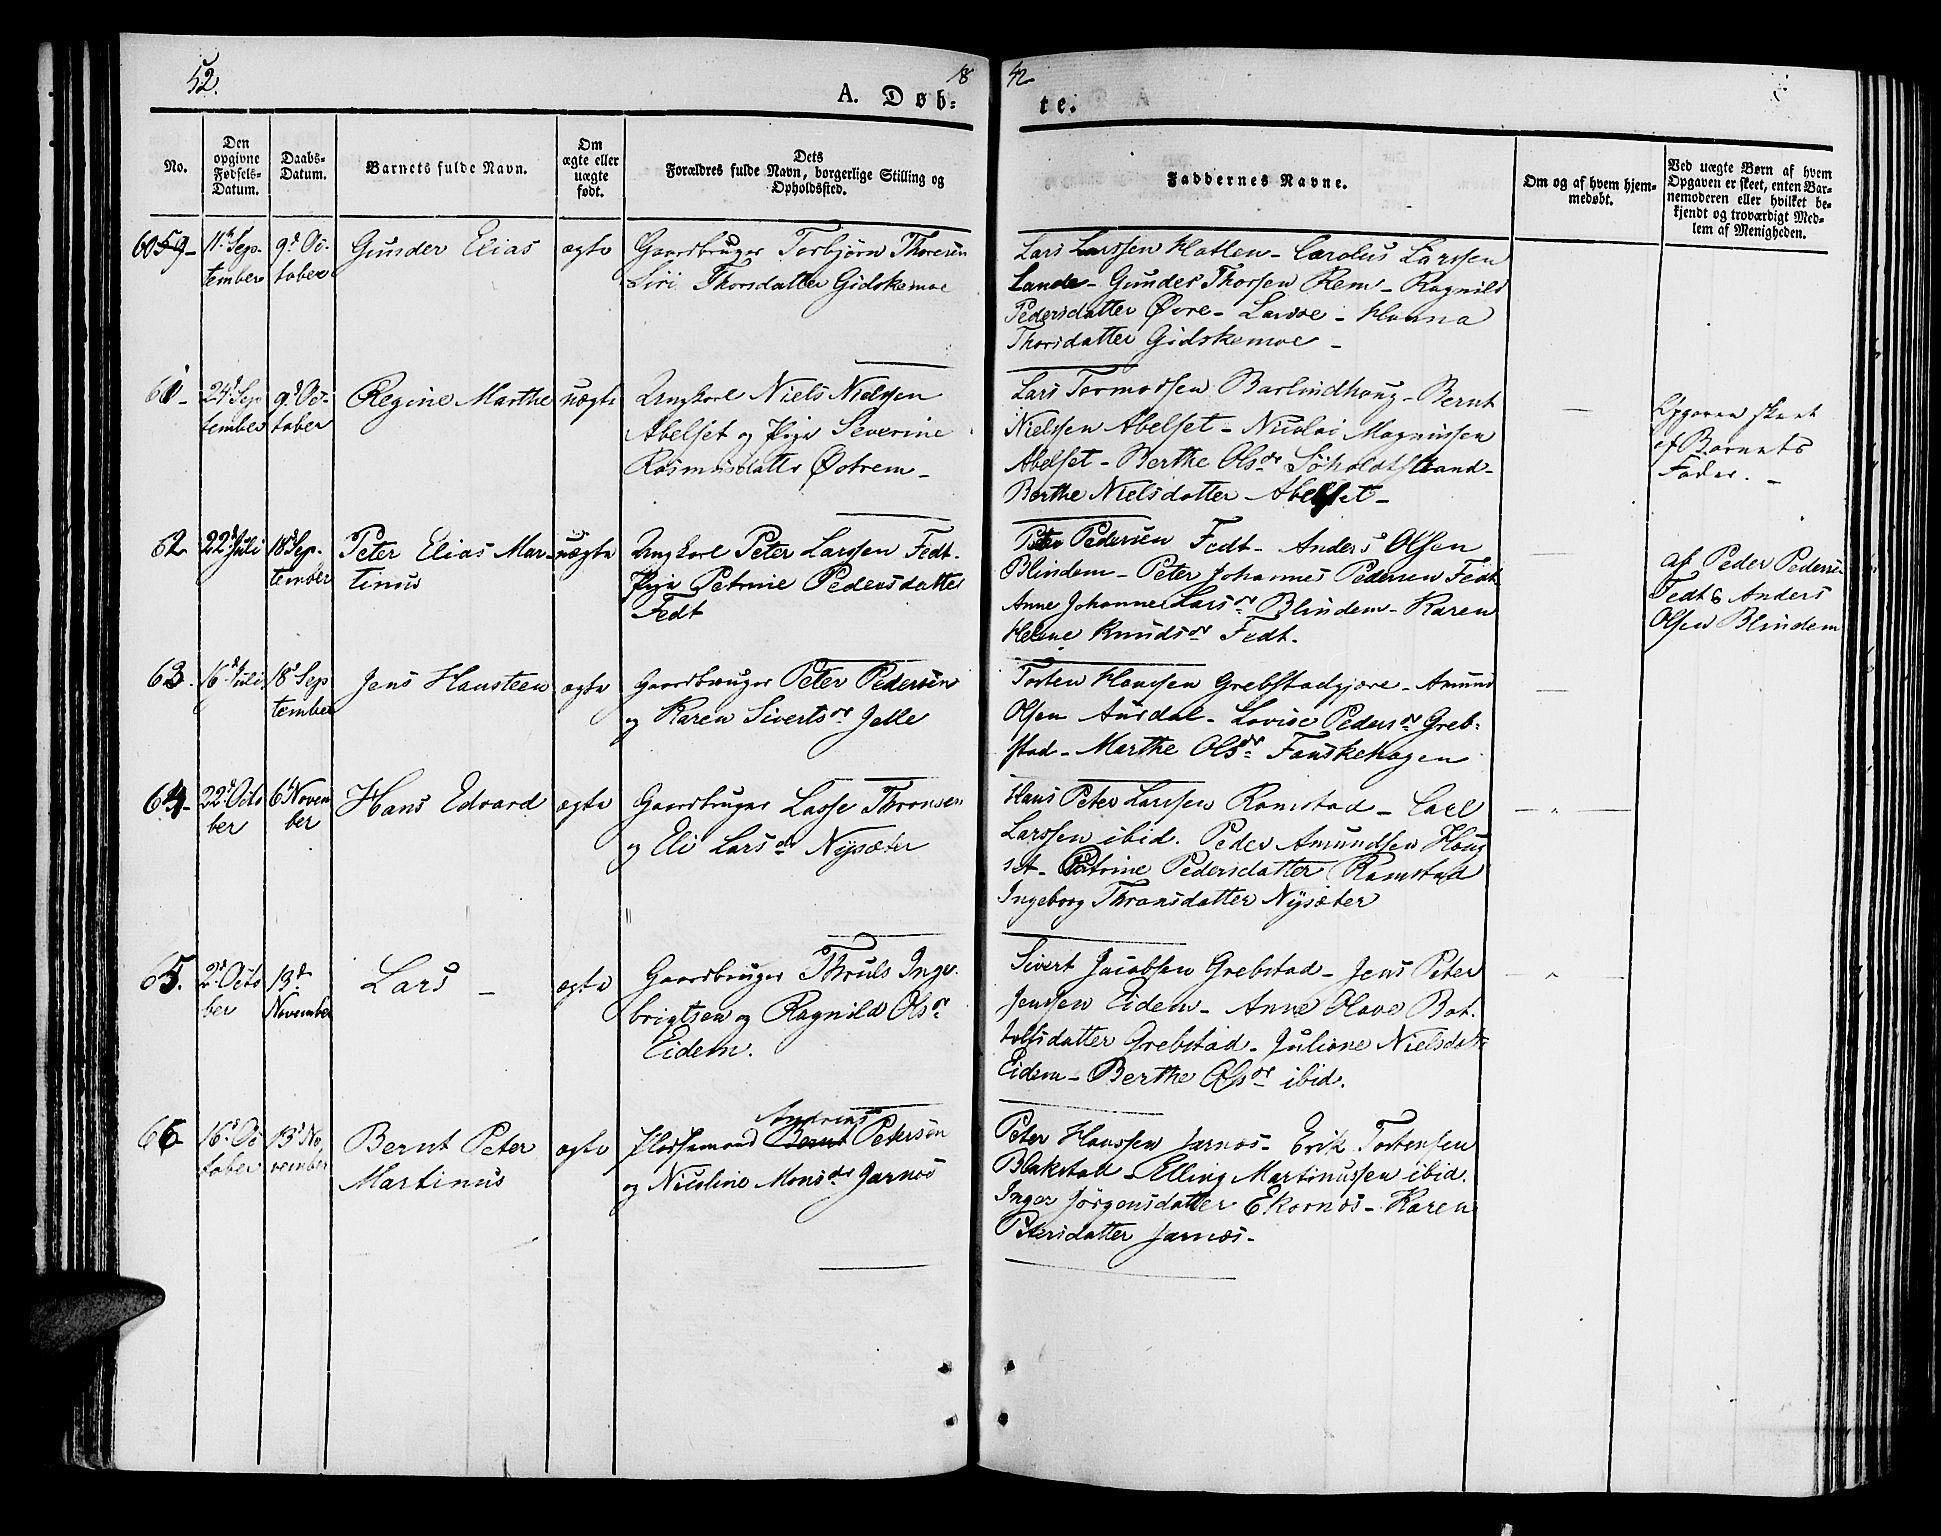 52.
18
42
A. Døb-
te.
No.
Den opgivne Fødsels-Datum.
Daabs-Datum.
Barnets fulde Navn.
Om ægte eller uægte født.
Dets Forældres fulde Navn, borgerlige Stilling og Opholdssted.
Faddernes Navne.
Om og af hvem hjem-
medøbt.
Ved uægte Børn af hvem
Opgaven er skeet, enten Bar-
nemoderen eller hvilket be-
kjendt og troværdigt Med-
lem af Menigheden.
6059
11te Sep-
tember
9d Oc-
tober
Gunder Elias
ægte
Gaardbruger Torbjørn Thoresen
Siri Thorsdatter Gidskemoe
Lars Larssen Hatlen - Carolus Larssen
Lande - Gunder Thorsen Rem - Ragnild
Pedersdatter Øvre - Larsoe - Hanna
Thorsdatter Gidskemoe -
61 -
24d Sep
tember
9d Oc-
tober
Regine Marthe
uægte
Ungkarl Niels Nielsen
Abelset og Pige Severine
Rasmusdatter Østrem -
Lars Tormodsen Barlindhoug - Bernt
Nielssen Abelset - Nicolai Magnussen
Abelset - Berthe Olsdr Søholdtstrand -
Berthe Nielsdatter Abelset -
Opgaven skeet
af Barnets
Fader. -
62
22d Juli
18d Sep-
tember
Peter Elias Mar-
tinus
uægte
Ungkarl Peter Larssen Fedt.
Pige Petrine Pedersdatter
Fedt
Peter Pedersen Fedt - Anders Olsen
Blindem - Peter Johannes Pedersen Fedt
Anne Johanne Larsdr Blindem - Karen
Helene Knudsdr Fedt.
af Peder Pedersen
Fedt & Anders
Olsen Blindem
63.
16d Juli
18d Sep
tember
Jens Hansteen
ægte
Gaardbruger Peter Pedersen
og Karen Sivertsdr Jelle
Torsten Hanssen Grebstadgjære - Amund
Olsen Aurdal - Lovise Pedersdr Greb-
stad - Marthe Olsdr Fauskehagen
64 -
22d Octo
ber
6d Novem
ber
Hans Edvard
ægte
Gaardbruger Lasse Thronsen
og Eli Larsdr Nysæter
Hans Peter Larssen Ramstad - Carl
Larssen ibid. Peder Amundsen Houg
set - Petrine Pedersdatter Ramstad
Ingeborg Thronsdatter Nysæter
65.
2d Octo
ber
13d
November
Lars -
ægte
Gaardbruger Thruls Inge-
brigtsen og Ragnild Olsdr
Eidem.
Sivert Jacobsen Grebstad - Jens Peter
Jenssen Eidem - Anne Olave Bot-
tolfsdatter Grebstad - Juliane Nielsdatr
Eidem - Berthe Olsdr ibid.
66 -
16d Oc
tober
13d No
vember
Bernt Peter
Martinus
ægte
Andreas
Pladsemand Bernt Petersen
og Nicoline Monsdr Jarnes
Peter Hanssen Jarnes - Erik Torstensen
Blakstad - Elling Martinussen ibid.
Inger Jørgensdatter Ekornes - Karen
Petersdatter Jarnes -